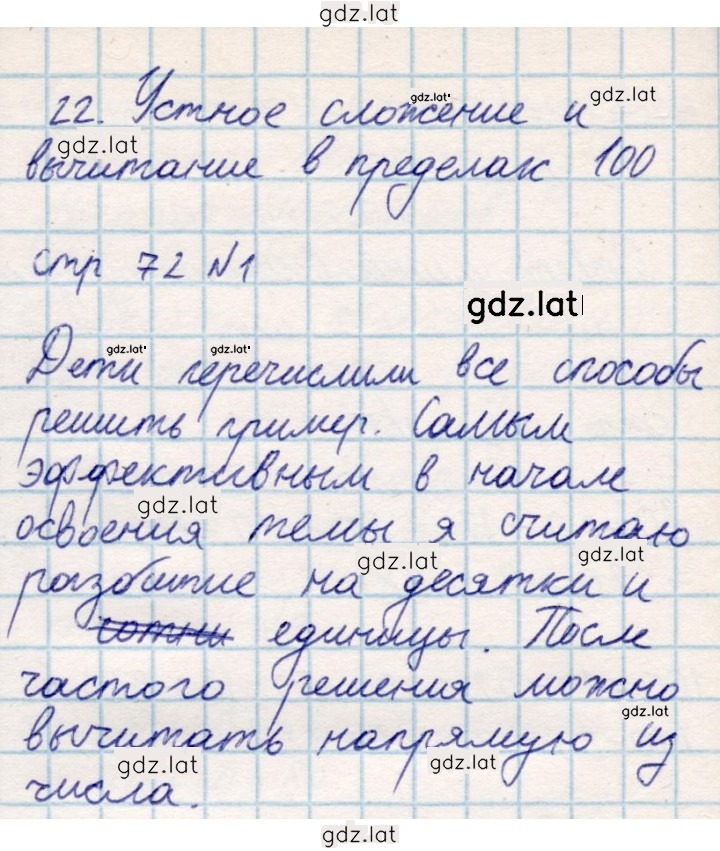 gdz.lat
22. Устное сложение и
вычитание в пределах 100
стр 72 N1
Дети перечислили все способы
решить пример. Самым
эффективным в начале
освоения темы я считаю
разбитие на десятки и
сотни единицы. После
частого решения можно
вычитать напрямую из
числа.
gdz.lat
gdz.lat
gdz.lat
gdz.lat
gdz.lat
gdz.lat
gdz.lat
gdz.lat
gdz.lat
gdz.lat
gdz.lat
gdz.lat
gdz.lat
gdz.lat